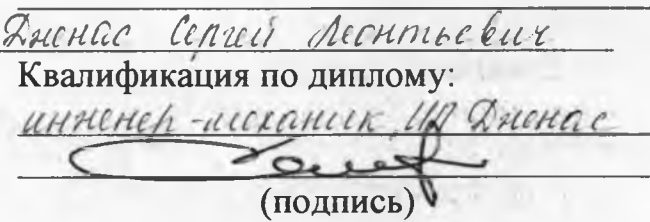 Дженас Сергей Леонтьевич
Квалификация по диплому:
инженер-механик, ИП Дженас
(подпись)